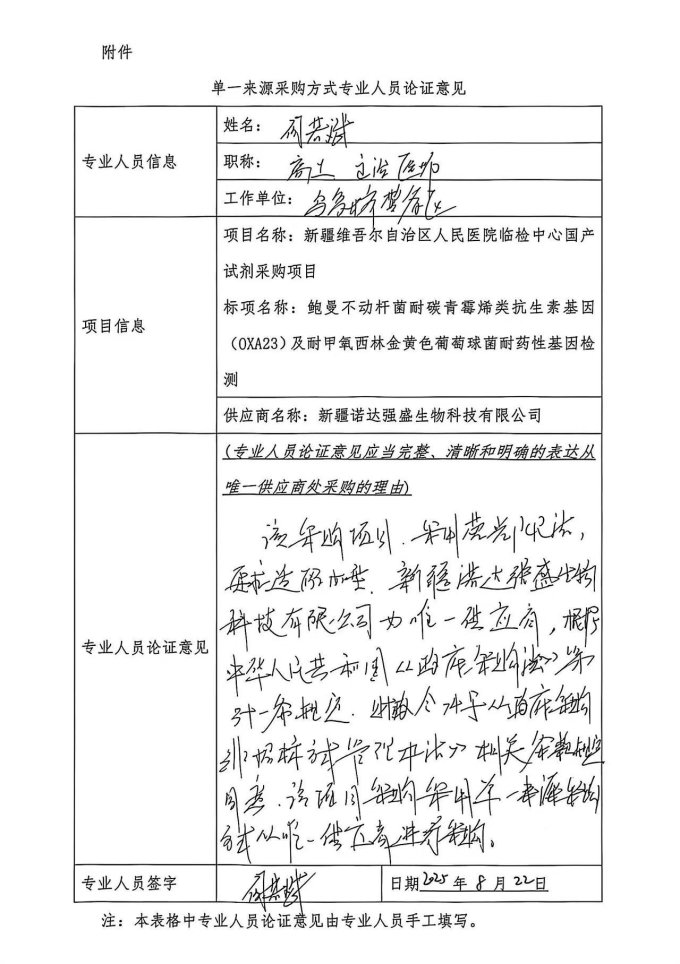 附件
单一来源采购方式专业人员论证意见
专业人员信息
姓名：
职称： 主治医师
工作单位：
项目信息
项目名称：新疆维吾尔自治区人民医院临检中心国产
试剂采购项目
标项名称：鲍曼不动杆菌耐碳青霉烯类抗生素基因
（OXA23）及耐甲氧西林金黄色葡萄球菌耐药性基因检
测
供应商名称：新疆诺达强盛生物科技有限公司
专业人员论证意见
(专业人员论证意见应当完整、清晰和明确的表达从
唯一供应商处采购的理由)
该采购项目，采用荧光PCR法，
新疆诺达强盛生物
科技有限公司为唯一供应商，根据
中华人民共和国《政府采购法》第
31条规定，财政令74号《政府采购
非招标方式管理办法》相关条款规定
同意该项目采购采用单一来源采购
方式从唯一供应商进行采购。
专业人员签字
日期2025年8月22日
注：本表格中专业人员论证意见由专业人员手工填写。